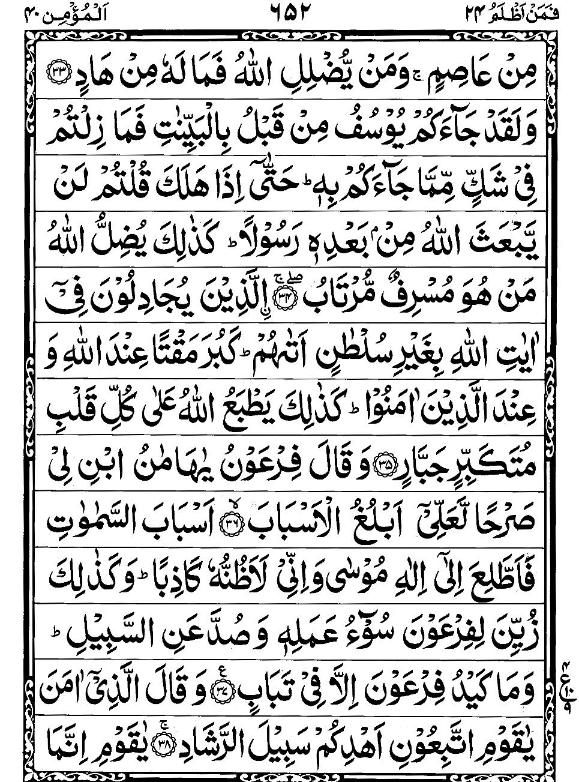 فَمَنْ اَظْلَمُ ٢٤ ٦٥٢ اَلْمُؤْمِن ٤٠
مِنْ عَاصِمٍ ۚ وَمَنْ يُّضْلِلِ اللّٰهُ فَمَا لَهٗ مِنْ هَادٍ ﴿٣٣﴾
وَلَقَدْ جَآءَكُمْ يُوْسُفُ مِنْ قَبْلُ بِالْبَيِّنٰتِ فَمَا زِلْتُمْ
فِىْ شَكٍّ مِّمَّا جَآءَكُمْ بِهٖ ؕ حَتّٰٓى اِذَا هَلَكَ قُلْتُمْ لَنْ
يَّبْعَثَ اللّٰهُ مِنْۢ بَعْدِهٖ رَسُوْلًا ؕ كَذٰلِكَ يُضِلُّ اللّٰهُ
مَنْ هُوَ مُسْرِفٌ مُّرْتَابُ ﴿٣٤﴾ ۨالَّذِيْنَ يُجَادِلُوْنَ فِىْٓ
اٰيٰتِ اللّٰهِ بِغَيْرِ سُلْطٰنٍ اَتٰهُمْ ؕ كَبُرَ مَقْتًا عِنْدَ اللّٰهِ وَ
عِنْدَ الَّذِيْنَ اٰمَنُوْا ؕ كَذٰلِكَ يَطْبَعُ اللّٰهُ عَلٰى كُلِّ قَلْبِ
مُتَكَبِّرٍ جَبَّارٍ ﴿٣٥﴾ وَ قَالَ فِرْعَوْنُ يٰهَامٰنُ ابْنِ لِىْ
صَرْحًا لَّعَلِّىْٓ اَبْلُغُ الْاَسْبَابَ ﴿٣٦﴾ ۙ اَسْبَابَ السَّمٰوٰتِ
فَاَطَّلِعَ اِلٰٓى اِلٰهِ مُوْسٰى وَاِنِّىْ لَاَظُنُّهٗ كَاذِبًا ؕ وَكَذٰلِكَ
زُيِّنَ لِفِرْعَوْنَ سُوْٓءُ عَمَلِهٖ وَصُدَّ عَنِ السَّبِيْلِ ؕ
وَمَا كَيْدُ فِرْعَوْنَ اِلَّا فِىْ تَبَابٍ ﴿٣٧﴾ وَ قَالَ الَّذِىْٓ اٰمَنَ
يٰقَوْمِ اتَّبِعُوْنِ اَهْدِكُمْ سَبِيْلَ الرَّشَادِ ﴿٣٨﴾ ۚ يٰقَوْمِ اِنَّمَا